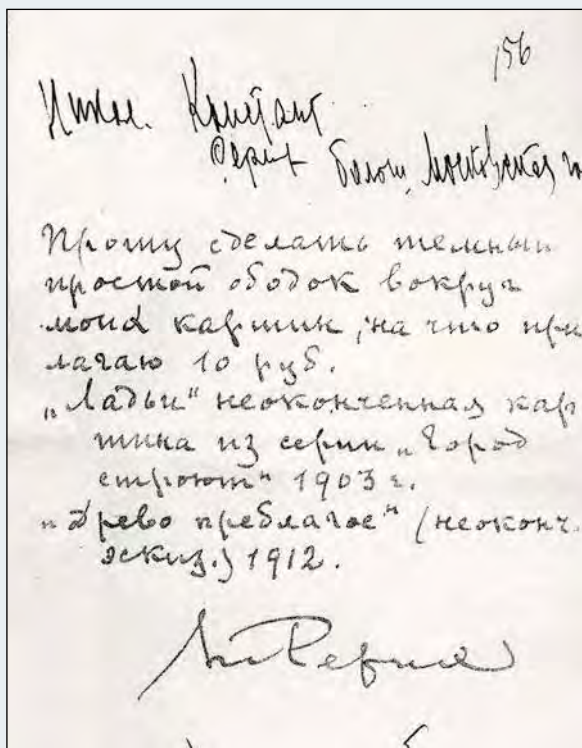 156
Никол. Констант
Рерих Больш. Московская го
Прошу сделать темный
простой ободок вокруг
моих картин, на что при
лагаю 10 руб.
„Ладьи“ неоконченная кар
тина из серии „Город
строют“ 1903 г.
„Древо преблагое“ (неоконч.
эскиз.) 1912.
Рерих